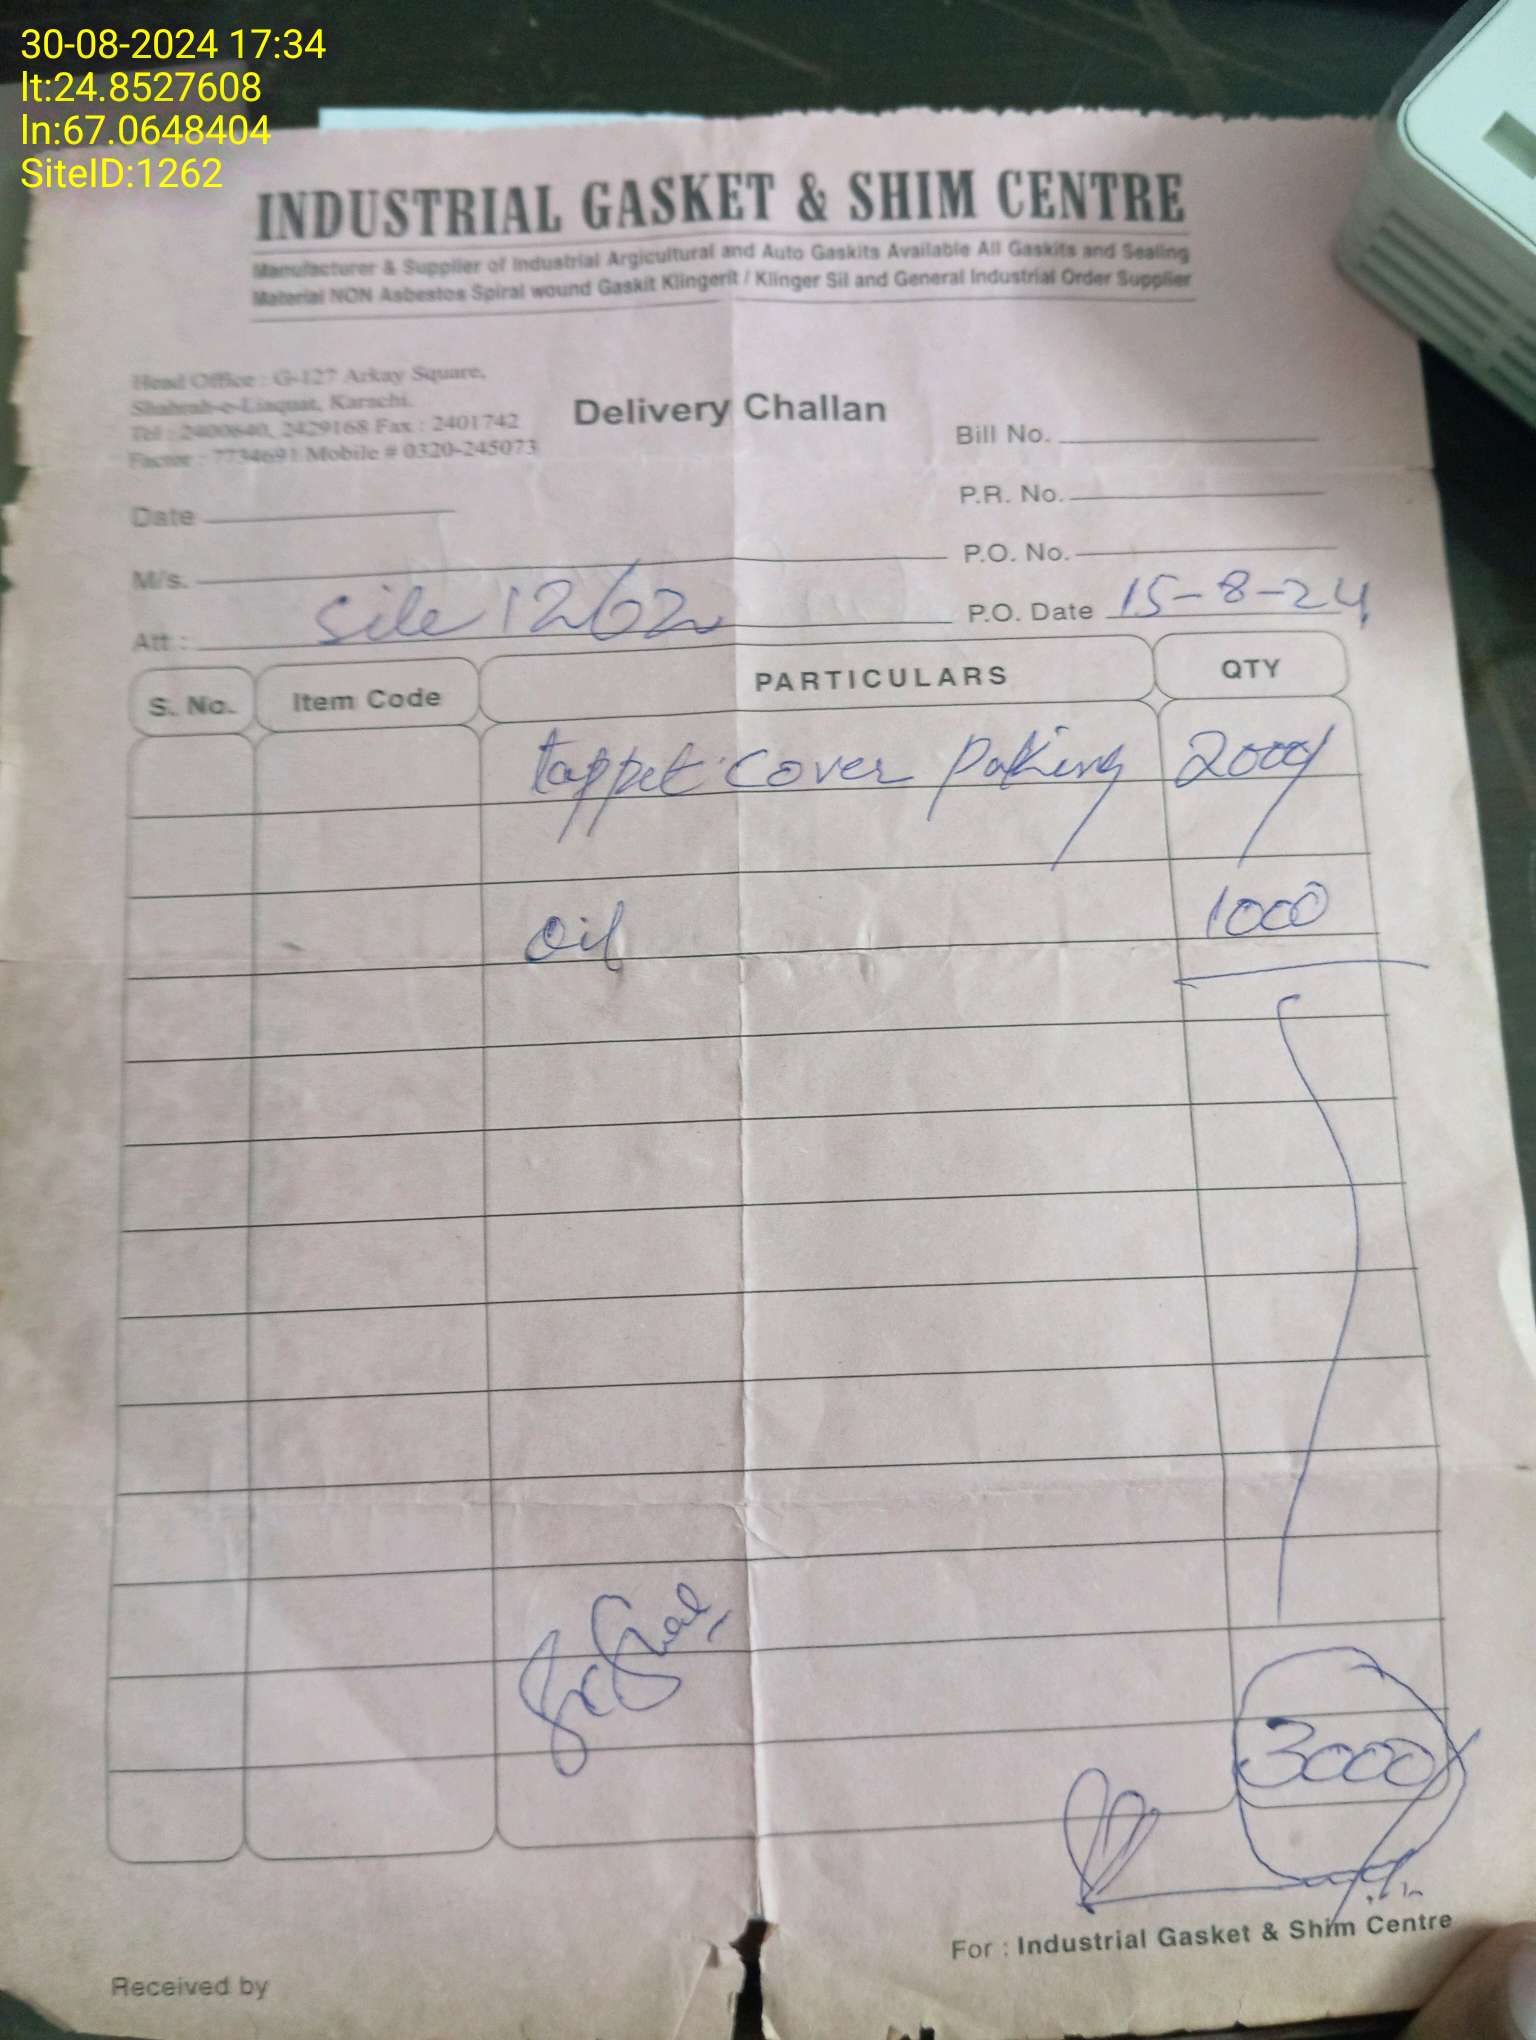 30-08-2024 17:34
lt:24.8527608
ln:67.0648404
SiteID:1262
INDUSTRIAL GASKET & SHIM CENTRE
Manufacturer & Supplier of Industrial Argicultural and Auto Gaskits Available All Gaskits and Sealing
Material NON Asbestos Spiral wound Gaskit Klingerit / Klinger Sil and General Industrial Order Supplier
Head Office : G-127 Arkay Square,
Shahrah-e-Liaquat, Karachi.
Tel : 2400640, 2429168 Fax : 2401742
Factor : 7734691 Mobile # 0320-245073
Delivery Challan
Bill No.
P.R. No.
Date
P.O. No.
M/s.
P.O. Date 15-8-24
Att : Site 1262
S. No. Item Code PARTICULARS QTY
tappet cover paking 2000/
oil 1000
3000/
For : Industrial Gasket & Shim Centre
Received by